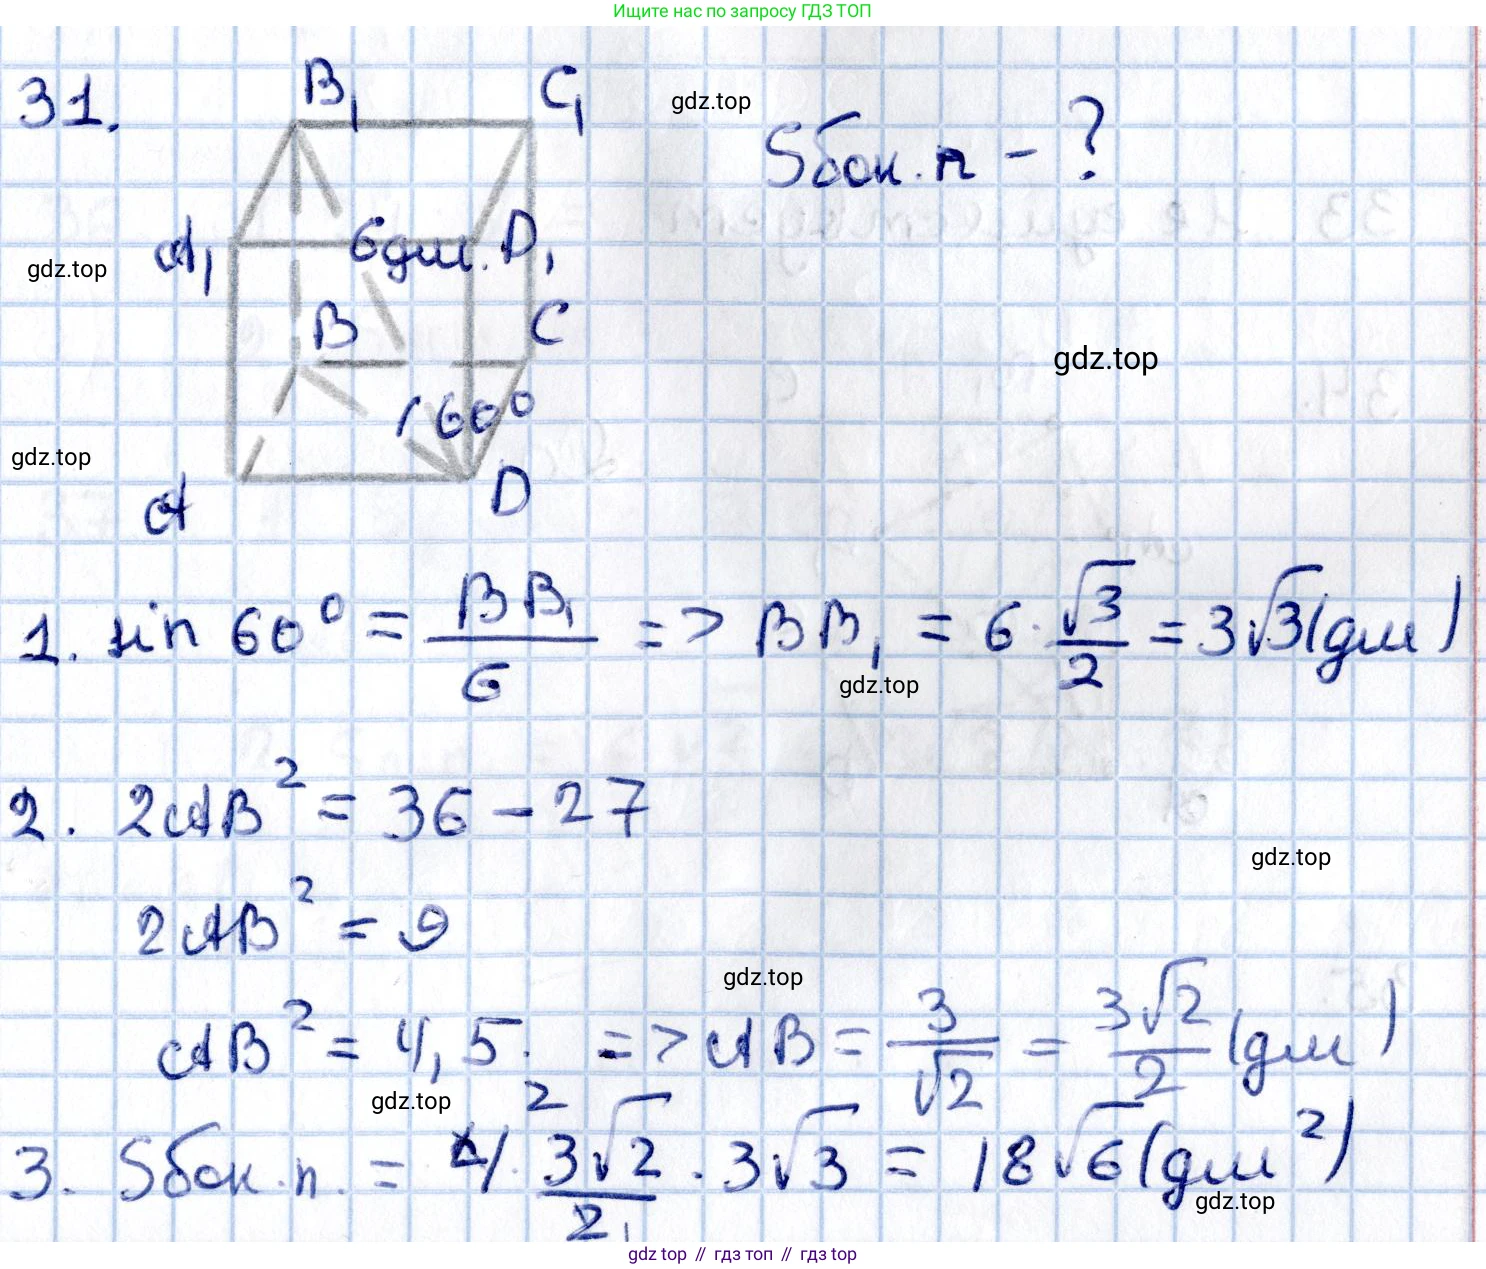 Ищите нас по запросу ГДЗ ТОП
31.
B₁
C₁
Sбок.п - ?
gdz.top
A₁
6дм.
D₁
gdz.top
B
C
gdz.top
60°
gdz.top
A
D
1. sin 60° = BB₁/6 => BB₁ = 6 · √3/2 = 3√3(дм)
gdz.top
2. 2AB² = 36 - 27
gdz.top
2AB² = 9
gdz.top
AB² = 4,5. => AB = 3/√2 = 3√2/2 (дм)
gdz.top
3. Sбок.п. = 4² · 3√2/2₁ · 3√3 = 18√6(дм²)
gdz.top
gdz top // гдз топ // gdz top